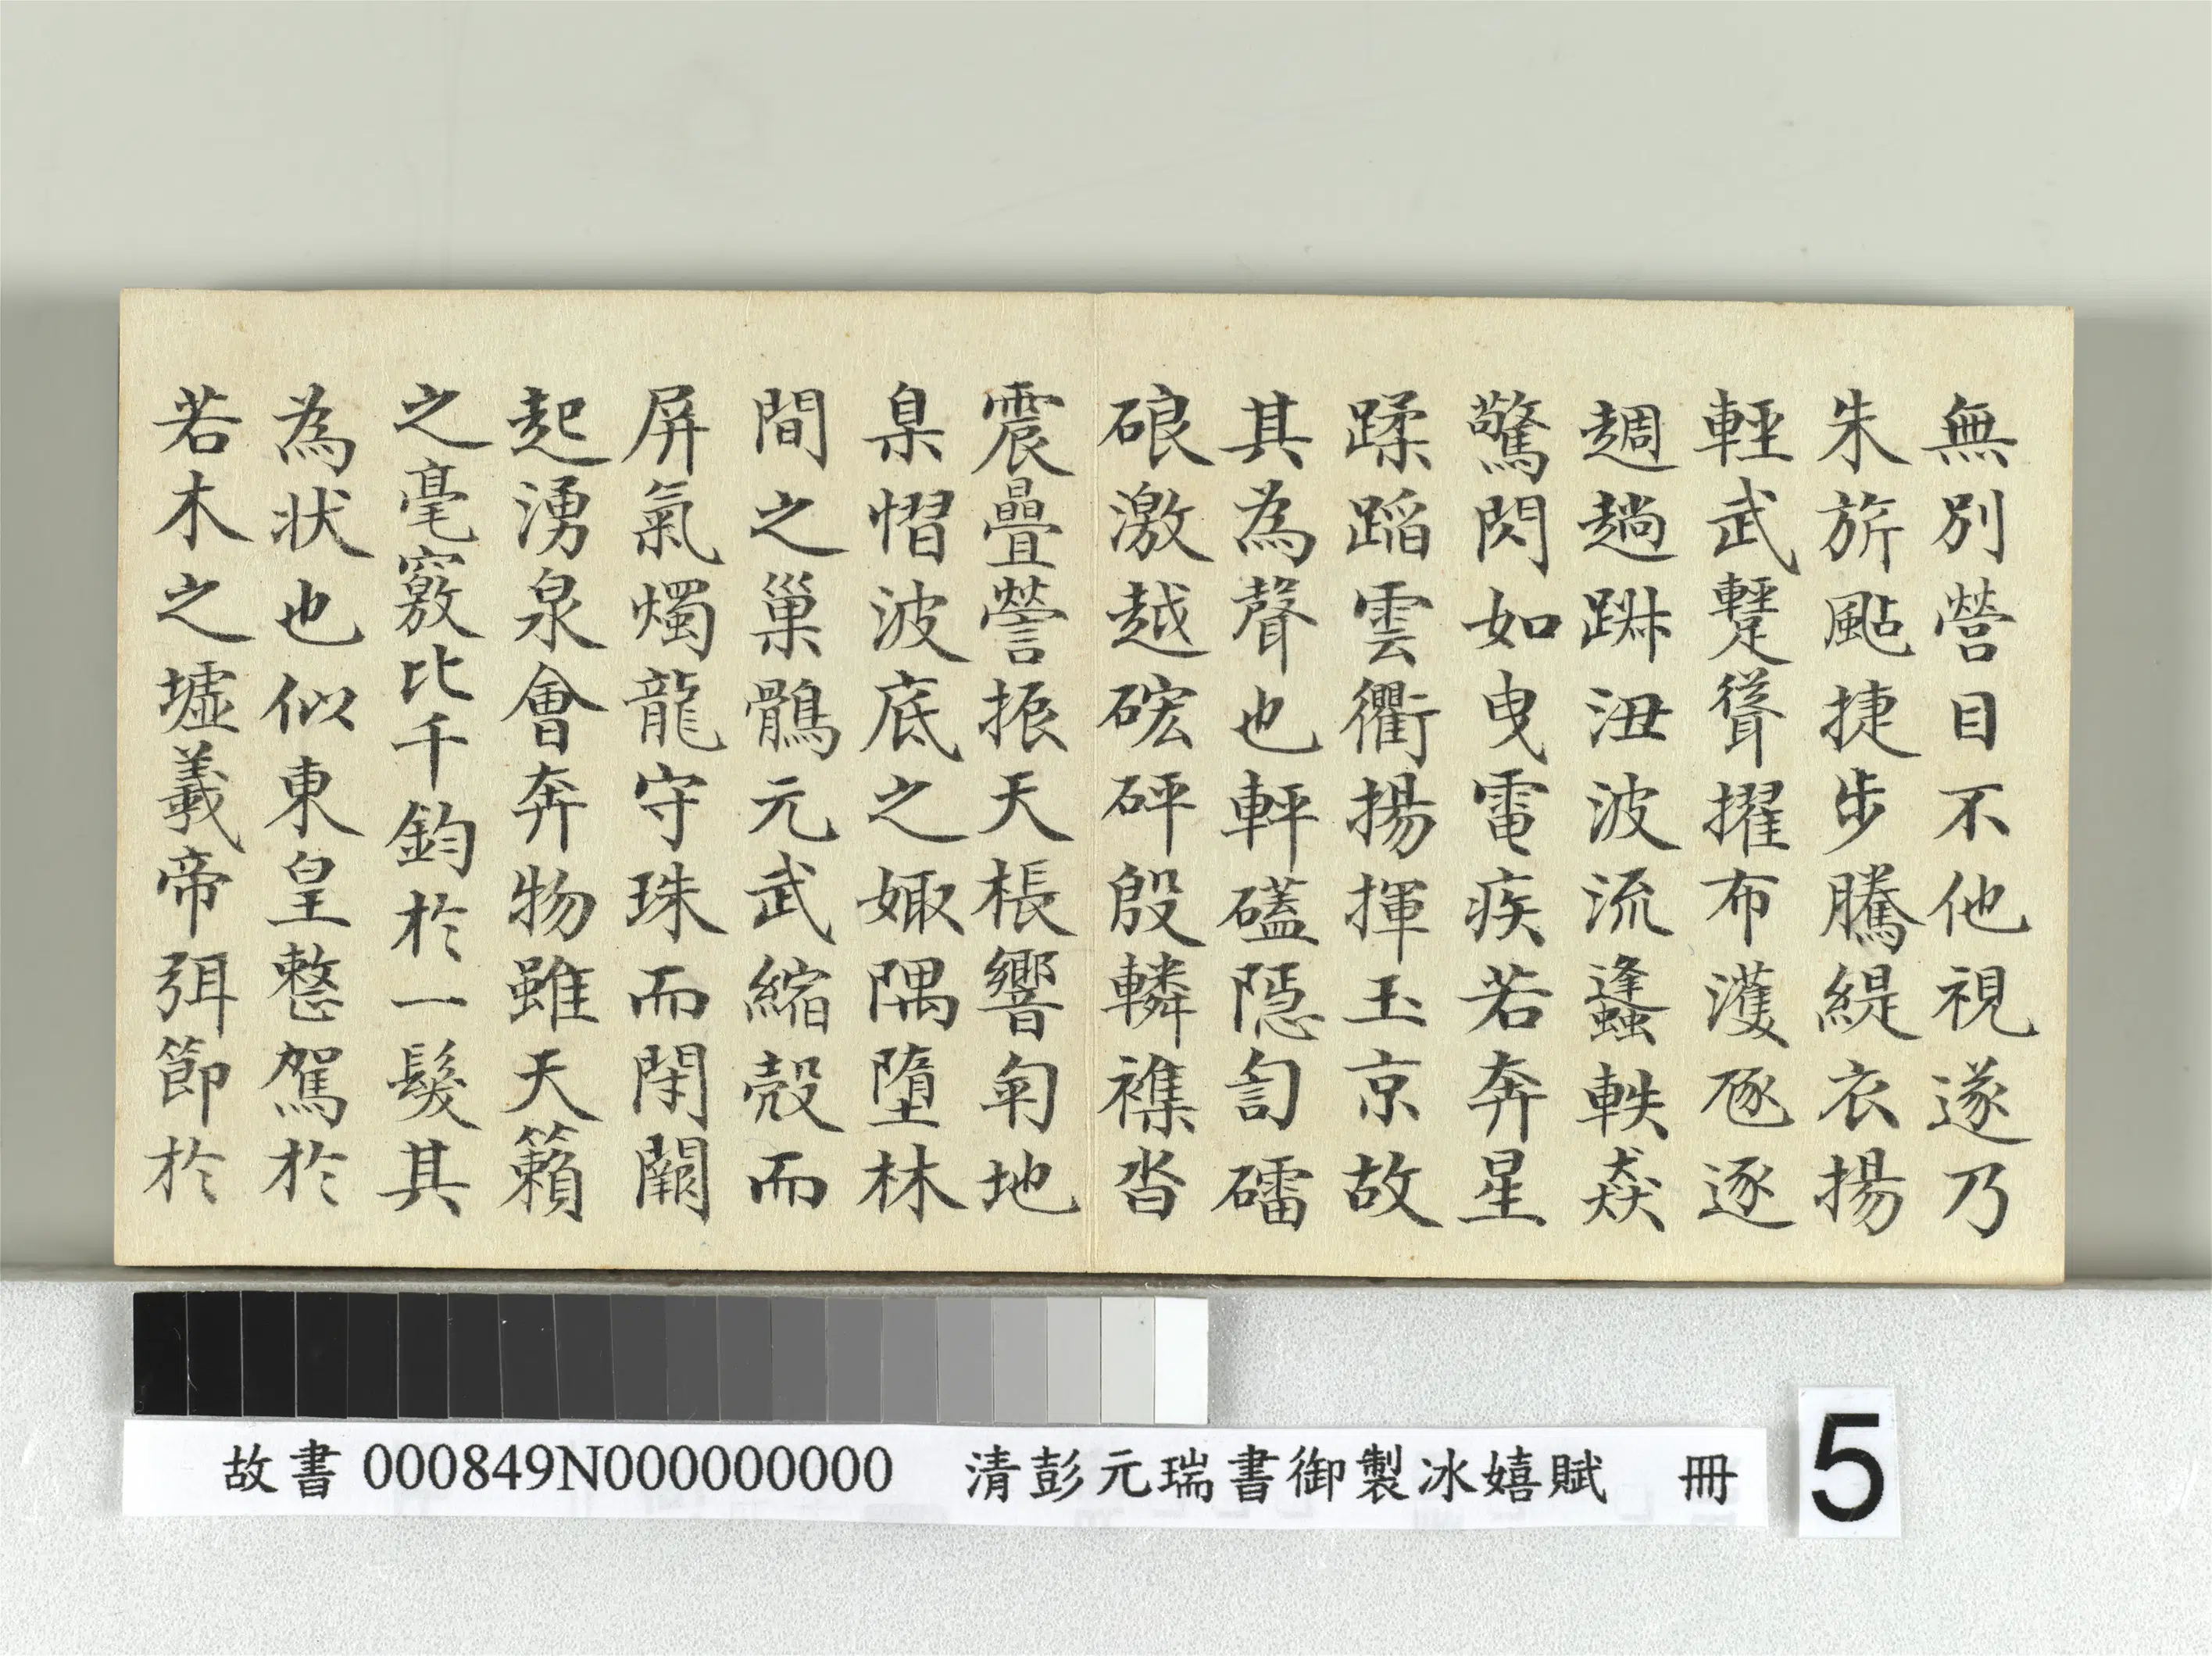 無別營目不他視遂乃
朱旂颭捷步騰緹衣揚
輕武躗聳擢布濩豗逐
趙踿沑波流蠭軼猋
驚閃如曳電疾若奔星
蹂蹈雲衢揚揮玉京故
其為聲也軯礚隱訇礌
硠激越硡砰殷轔襍沓
震疊謍振天棖響訇地
臬慴波底之娵隅墮林
間之巢鶻元武縮殼而
屏氣燭龍守珠而閉闕
起湧泉會奔物雖天籟
之毫竅比千鈞於一髮其
為狀也似東皇整駕於
若木之墟羲帝弭節於
故書000849N000000000 清彭元瑞書御製冰嬉賦 冊
5